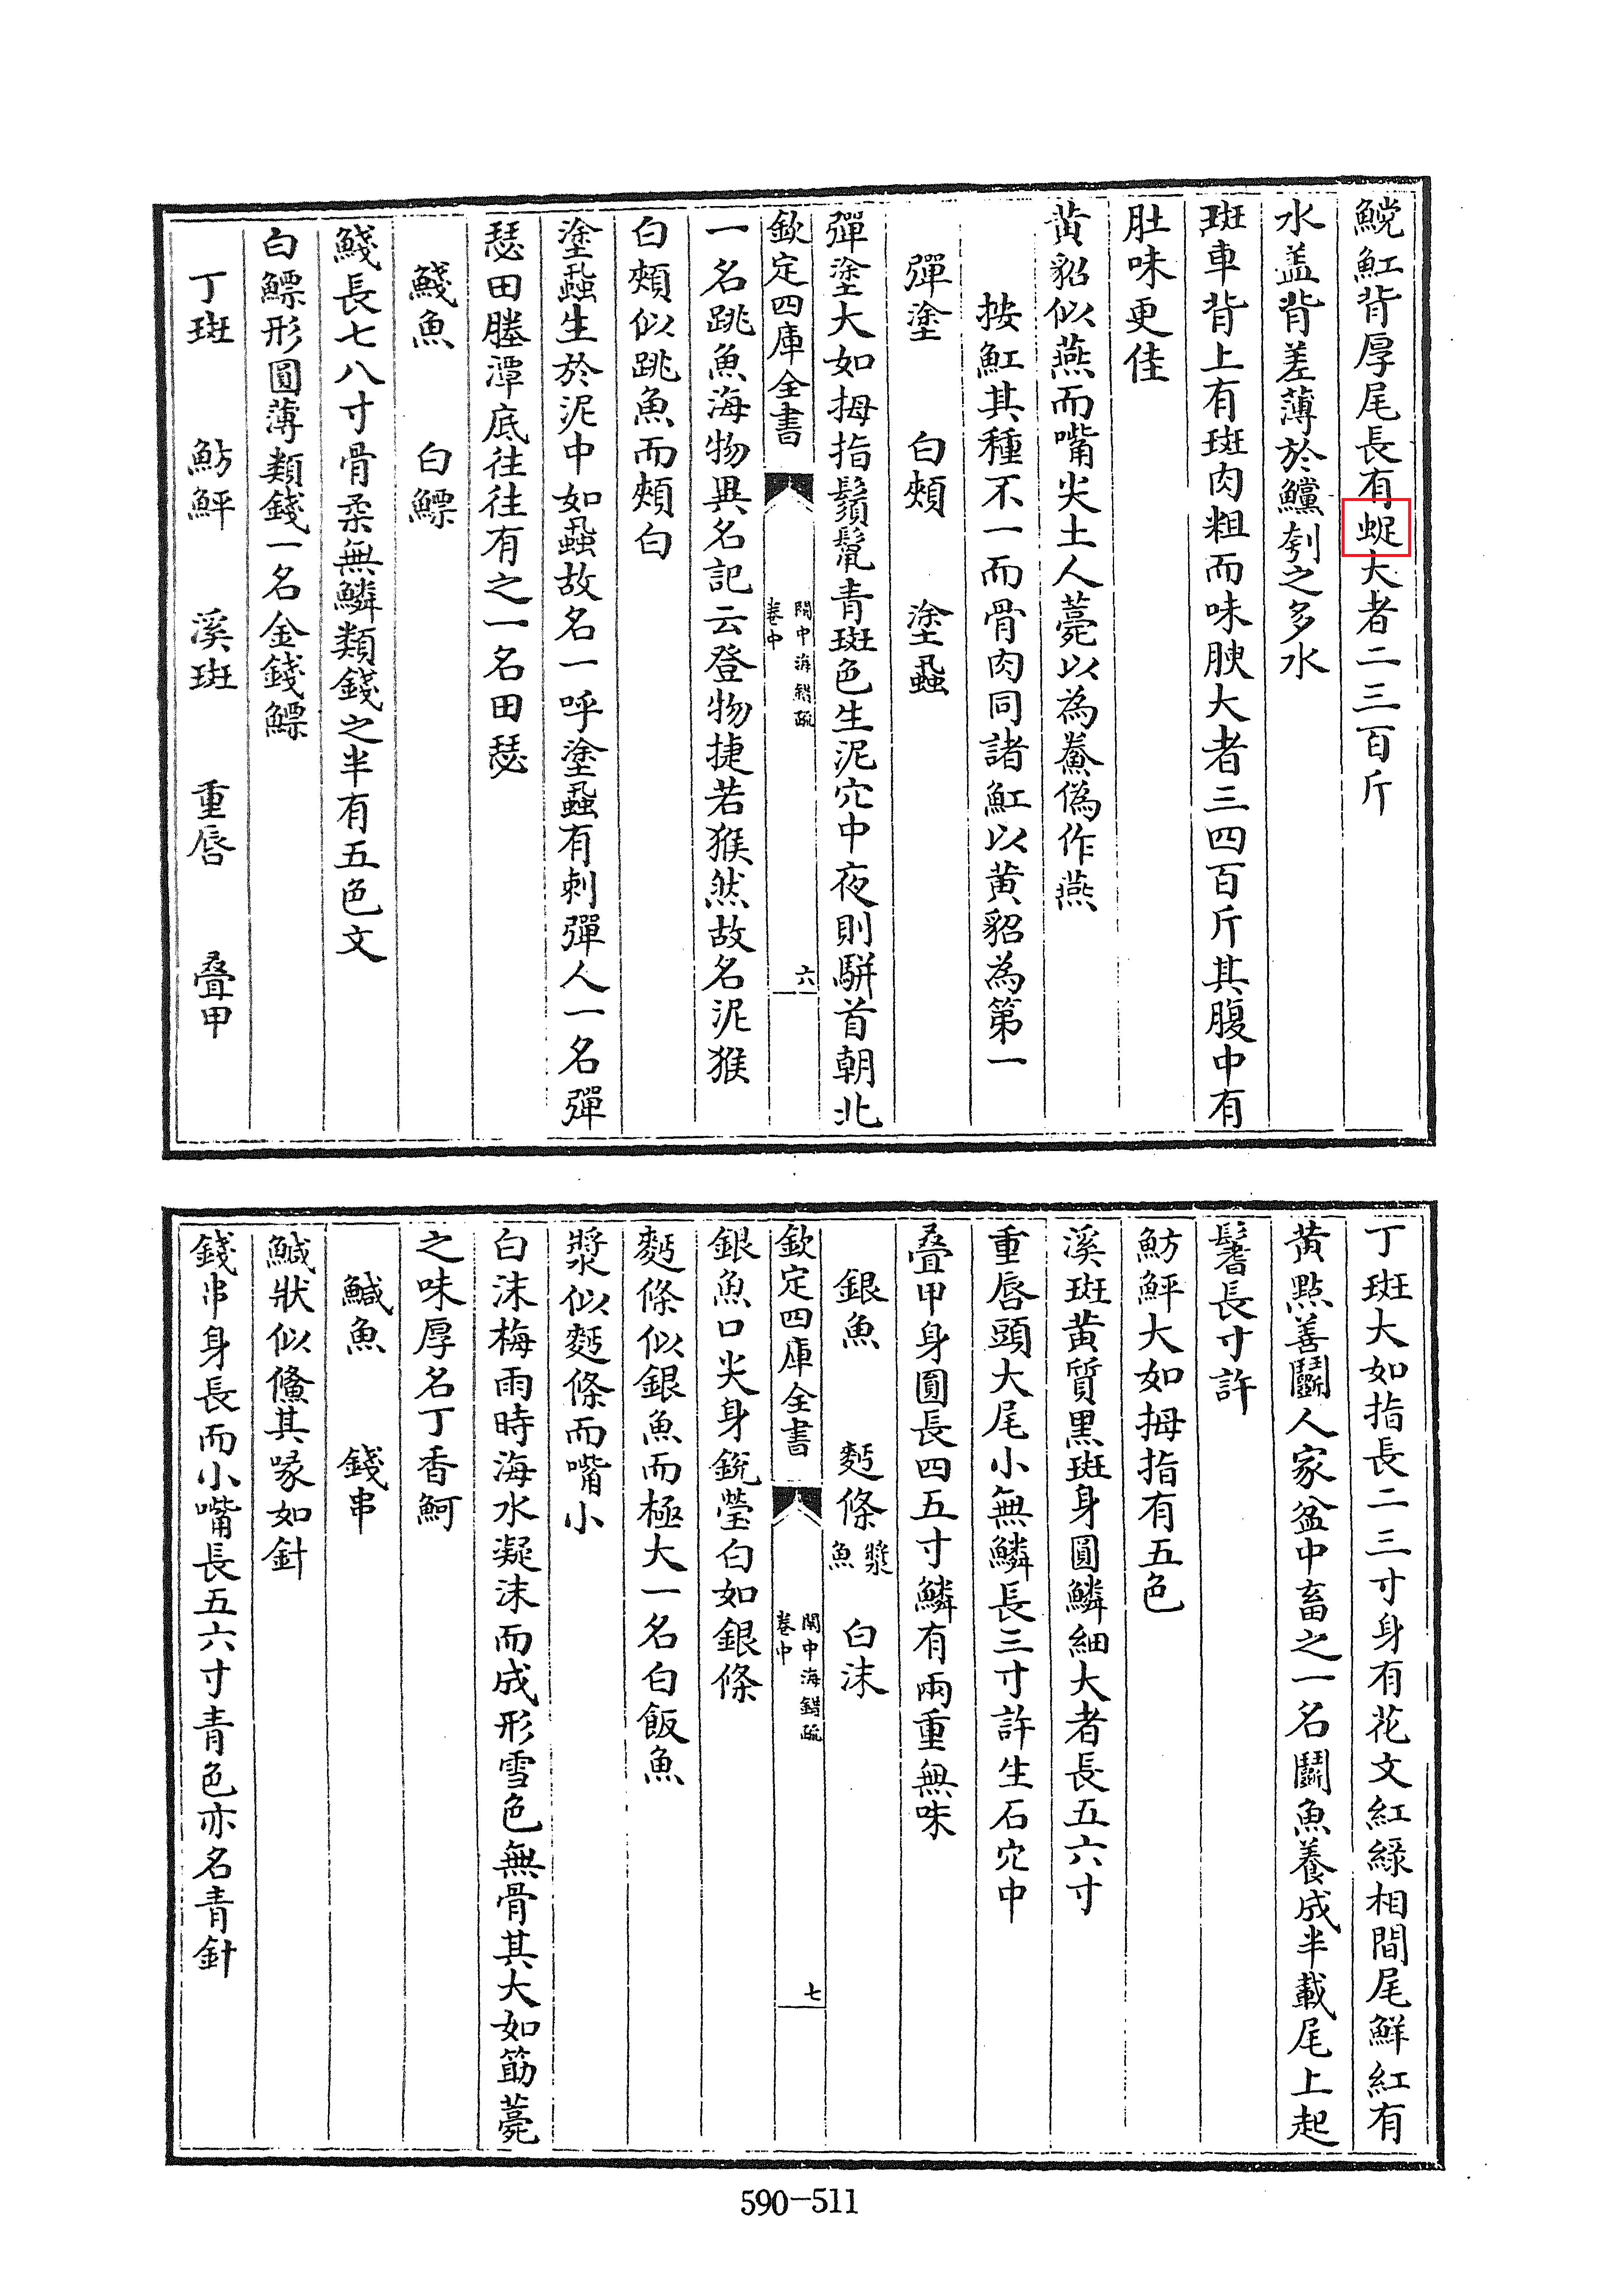 鯇魟背厚尾長有蜓大者二三百斤
水盖背差薄於鱨刳之多水
斑車背上有斑肉粗而味腴大者三四百斤其腹中有
肚味更佳
黄貂似燕而嘴尖土人薧以為鮝偽作燕
按魟其種不一而骨肉同諸魟以黄貂為第一
彈塗 白頰 塗蝨
彈塗大如拇指鬚鬛青斑色生泥穴中夜則駢首朝北
欽定四庫全書
閩中海錯疏
卷中
六
一名跳魚海物異名記云登物捷若猴然故名泥猴
白頰似跳魚而頰白
塗蝨生於泥中如蝨故名一呼塗蝨有刺彈人一名彈
瑟田塍潭底往往有之一名田瑟
鯼魚 白鰾
鯼長七八寸骨柔無鱗類錢之半有五色文
白鰾形圓薄類錢一名金錢鰾
丁斑 魴鮃 溪斑 重唇 叠甲
丁斑大如指長二三寸身有花文紅綠相間尾鮮紅有
黄㸃善鬬人家盆中畜之一名鬬魚養成半載尾上起
鬐長寸許
魴鮃大如拇指有五色
溪斑黄質黑斑身圓鱗細大者長五六寸
重唇頭大尾小無鱗長三寸許生石穴中
叠甲身圓長四五寸鱗有兩重無味
銀魚 麪條 漿魚 白沫
欽定四庫全書
閩中海錯疏
卷中
七
銀魚口尖身銳瑩白如銀條
麪條似銀魚而極大一名白飯魚
漿似麪條而嘴小
白沫梅雨時海水凝沫而成形雪色無骨其大如筯薧
之味厚名丁香鮤
鰔魚 錢串
鰔狀似鯈其喙如針
錢串身長而小嘴長五六寸青色亦名青針
590-511